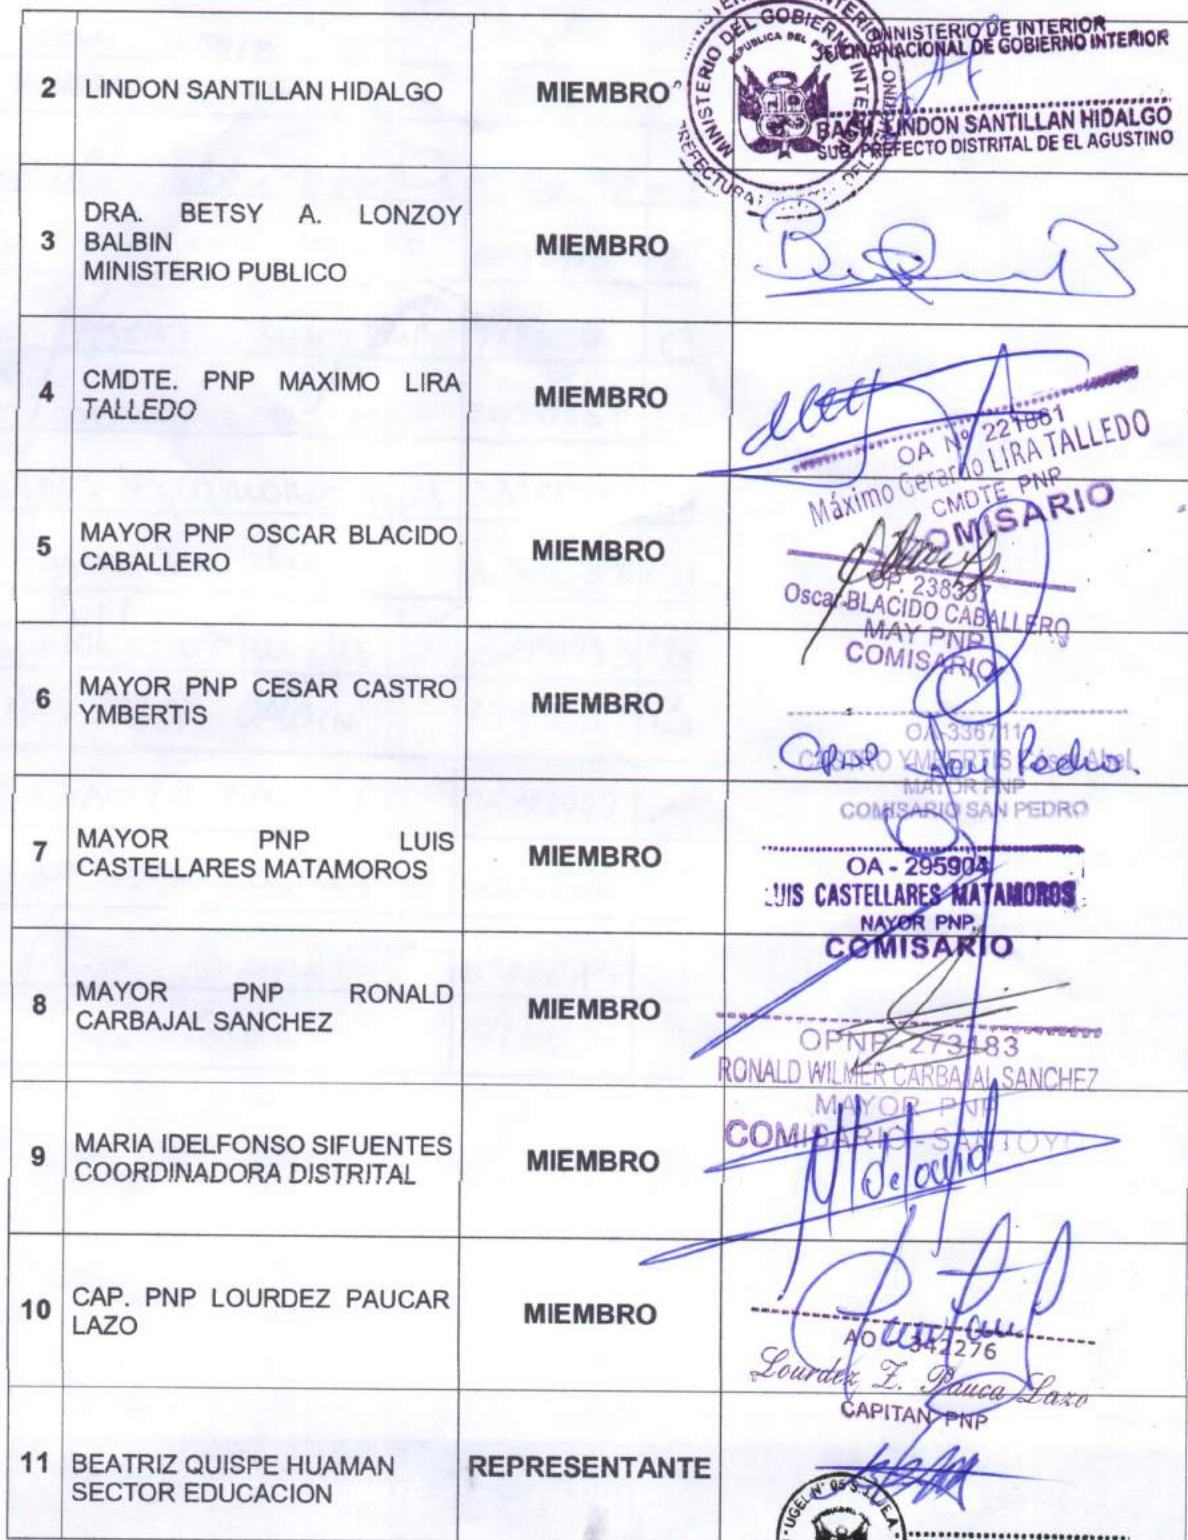 2 LINDON SANTILLAN HIDALGO MIEMBRO
MINISTERIO DE INTERIOR
NACIONAL DE GOBIERNO INTERIOR
BACH. LINDON SANTILLAN HIDALGO
SUB. PREFECTO DISTRITAL DE EL AGUSTINO
DRA. BETSY A. LONZOY
3 BALBIN MIEMBRO
MINISTERIO PUBLICO
4 CMDTE. PNP MAXIMO LIRA MIEMBRO
TALLEDO
OA Nº 221861
Máximo Gerardo LIRA TALLEDO
CMDTE PNP
COMISARIO
5 MAYOR PNP OSCAR BLACIDO MIEMBRO
CABALLERO
OP. 238387
Oscar BLACIDO CABALLERO
MAY PNP
COMISARIO
6 MAYOR PNP CESAR CASTRO MIEMBRO
YMBERTIS
OA-336711
CASTRO YMBERTIS César Abel
MAYOR PNP
COMISARIO SAN PEDRO
Cpnp San Pedro.
7 MAYOR PNP LUIS MIEMBRO
CASTELLARES MATAMOROS
OA - 295904
LUIS CASTELLARES MATAMOROS
NAYOR PNP.
COMISARIO
8 MAYOR PNP RONALD MIEMBRO
CARBAJAL SANCHEZ
OPNP 273483
RONALD WILMER CARBAJAL SANCHEZ
MAYOR PNP
COMISARIO - SANTOYO
9 MARIA IDELFONSO SIFUENTES MIEMBRO
COORDINADORA DISTRITAL
10 CAP. PNP LOURDEZ PAUCAR MIEMBRO
LAZO
AO 342276
Lourdez Z. Pauca Lazo
CAPITAN PNP
11 BEATRIZ QUISPE HUAMAN REPRESENTANTE
SECTOR EDUCACION
UGEL N° 05